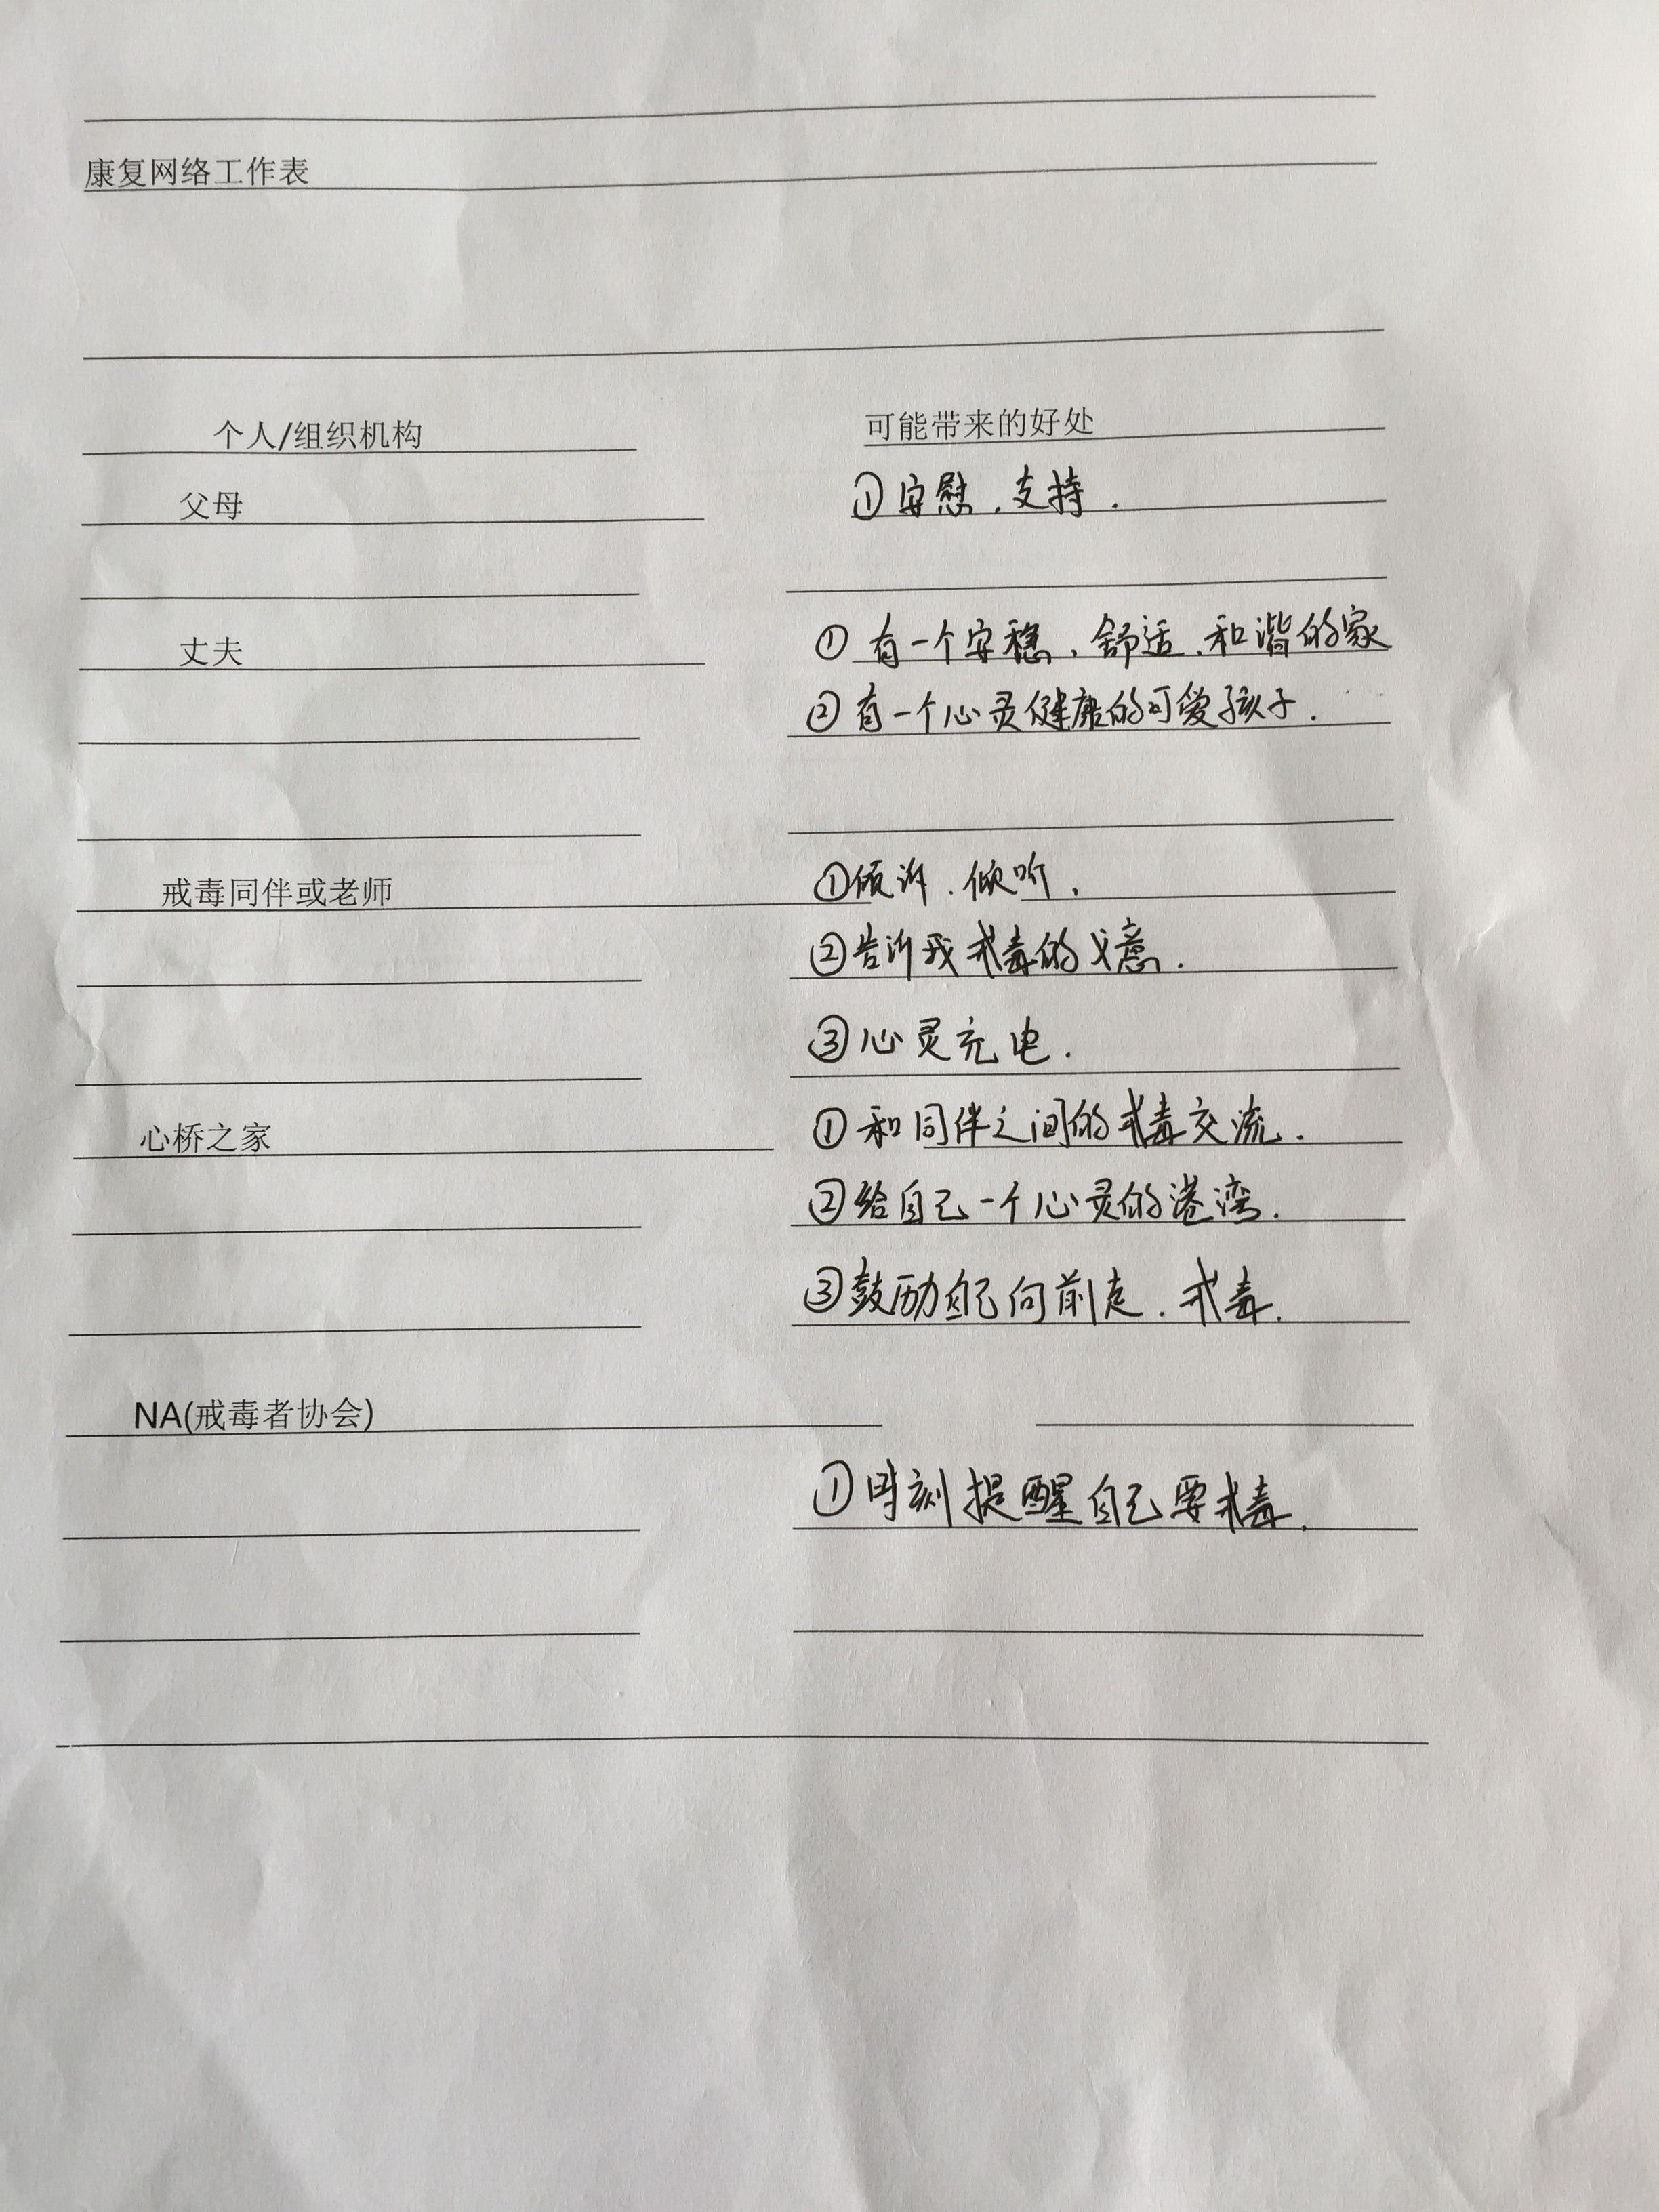 康复网络工作表
个人/组织机构 可能带来的好处
父母 ①安慰.支持.
丈夫 ①有一个安稳、舒适、和谐的家
②有一个心灵健康的可爱孩子.
戒毒同伴或老师 ①倾诉.倾听.
②告诉我戒毒的意.
③心灵充电.
心桥之家 ①和同伴之间的戒毒交流.
②给自己一个心灵的港湾.
③鼓励自己向前走.戒毒.
NA(戒毒者协会)
①时刻提醒自己要戒毒.